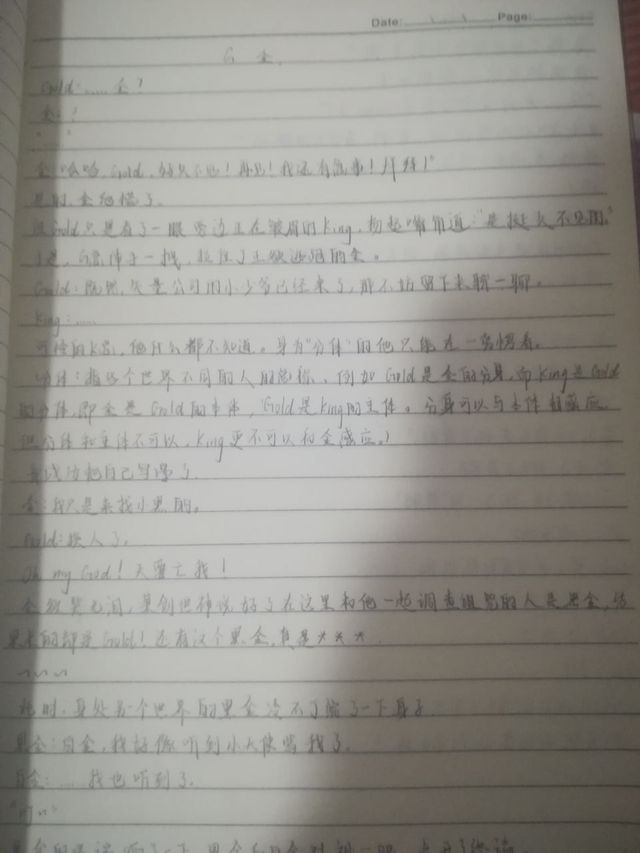 Date: Page:
G 金.
Gold:……金?
金:?
金:"哈哈,Gold,好久不见!再见!我还有急事!拜拜!"
是的,金他怂了.
但Gold只是看了一眼旁边正在皱眉的King,扬起嘴角道:"是挺久不见的."
于是,Gold伸手一拽,拉住了正欲逃跑的金。
Gold:既然矢量公司的小少爷已经来了,那不妨留下来聊一聊。
King:……
可怜的King,他什么都不知道。身为"分体"的他只能在一旁愣着。
分体:指每个世界不同的人的总称、例如Gold是金的分身,而King是Gold
的分体,即金是Gold的本体,Gold是King的主体。分身可以与本体相感应
但分体和主体不可以,King更不可以和金感应。)
金:我只是来找小黑的。
Gold:换人了。
Oh my God!天要亡我!
金欲哭无泪,某创世神说好了在这里和他一起调查组织的人是黑金,结
果来的却是Gold!还有这个黑金,真是***
~~~
此时,身处另个世界的黑金冷不丁缩了一下身子
黑金:白金,我好像听到小天使骂我了.
白金:……我也听到了.